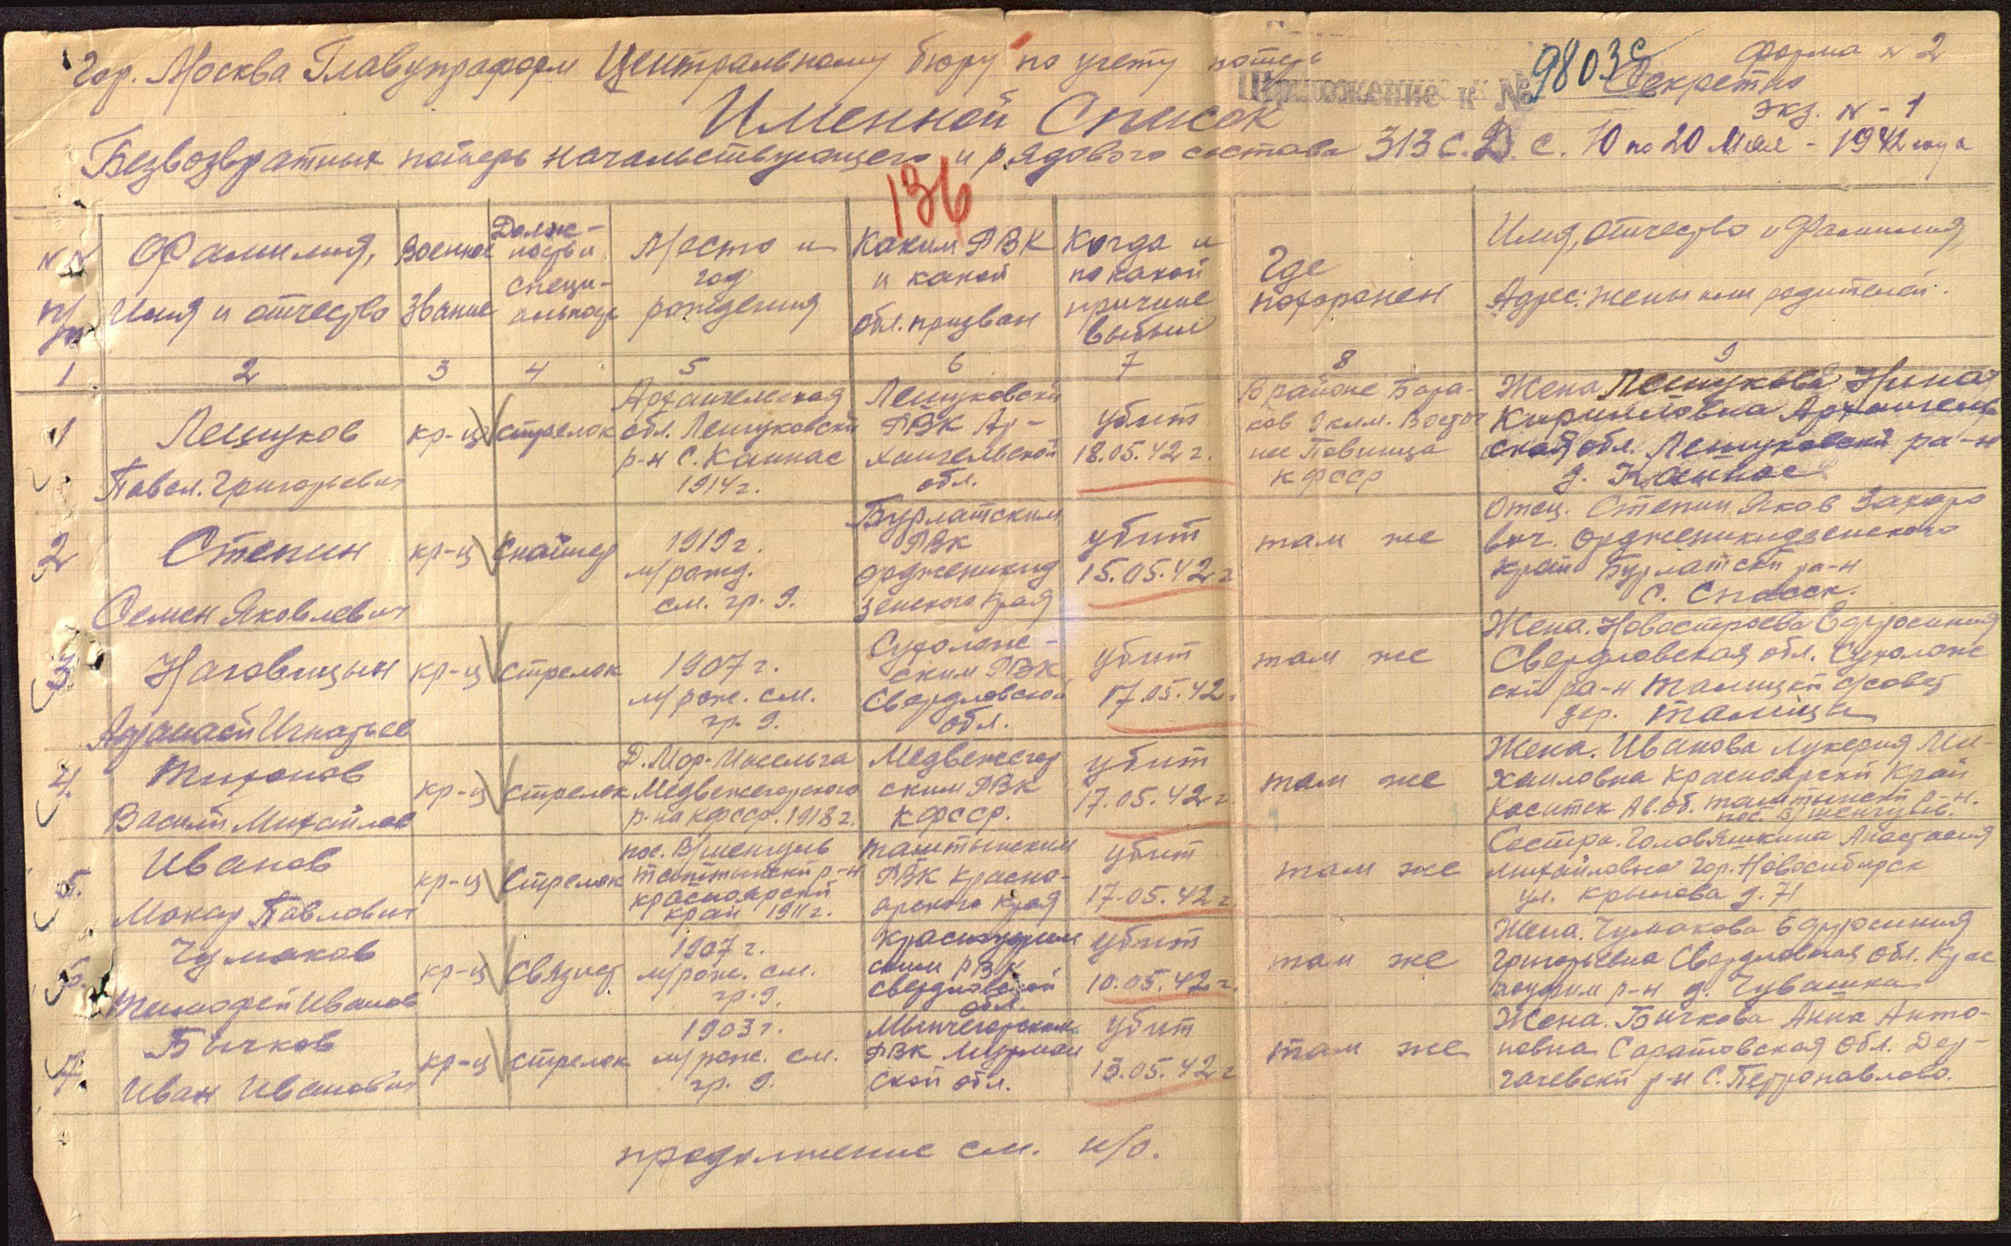 Гор. Москва Главупраформ Центральному бюро по учету потерь
Приложение к № 9803с
Форма № 2
Секретно
экз. № - 1
Именной Список
Безвозвратных потерь начальствующего и рядового состава 313 С.Д. с 10 по 20 Мая - 1942 года
136
№ № п/п
Фамилия,
Имя и отчество
Военное
Звание
Долж-
ность и
специ-
альность
Место и
год
рождения
Каким РВК
и какой
обл. призван
Когда и
по какой
причине
выбыл
Где
похоронен
Имя, отчество и Фамилия,
Адрес: жены или родителей.
1 2 3 4 5 6 7 8 9
1
Лешуков
Павел Григорьевич
кр-ц
стрелок
Архангельская
обл. Лешуковский
р-н с. Каннас
1914 г.
Лешуковский
РВК Ар-
хангельской
обл.
убит
18.05.42 г.
В районе Бара-
ков 9 клм. Восточ
нее Повенца
КФССР
Жена Лешукова Нина
Кирилловна Архангель
ская обл. Лешуковский ра-н
д. Каннас
2
Степин
Семен Яковлевич
кр-ц
Снайпер
1919 г.
м/рожд.
см. гр. 9.
Бурлатским
РВК
орджоникид
зенского края
убит
15.05.42 г
там же
Отец. Степин Яков Захаро
вич. Орджоникидзенского
край Бурлатский ра-н
с. Спасск.
3
Наговицын
Афанасий Игнатьев
кр-ц
стрелок
1907 г.
м/рож. см.
гр. 9.
Сухолож-
ским РВК
Свердловской
обл.
убит
17.05.42.
там же
Жена. Новостроева Ефросиния
Свердловская обл. Сухолож
ский ра-н Талицкий с/совет
дер. Талица
4.
Тихонов
Василий Михайлов
кр-ц
стрелок
Д. Мор-Масельга
Медвежегорского
р-на КФССР. 1918 г.
Медвежегор
ским РВК
КФССР.
убит
17.05.42 г.
там же
Жена. Иванова Лукерия Ми-
хайловна Красноярский Край
Хаситск Ав. об. таштыпский р-н.
пос. В/тенгувь.
5.
Иванов
Макар Павлович
кр-ц
Стрелок
пос. В/менгувь
Таштыпский р-н
красноярский
край 1911 г.
таштыпским
РВК Красно-
ярского края
убит
17.05.42 г.
там же
Сестра. Головяшкина Анастасия
Михайловна гор. Новосибирск
ул. крылова д. 71
6.
Чумаков
Тимофей Иванов
кр-ц
Связист
1907 г.
м/рож. см.
гр. 9.
Красноуфим
ским РВК
Свердловской
обл
убит
10.05.42 г.
там же
Жена. Чумакова Ефросиния
Григорьевна Свердловская обл. Крас
ноуфим р-н д. Чувашка
7.
Бычков
Иван Иванович
кр-ц
стрелок
1903 г.
м/рож. см.
гр. 9.
Мончегорским
РВК Мурман
ской обл.
убит
13.05.42 г
там же
Жена. Бычкова Анна Анто-
новна Саратовская обл. Дер-
гачевский р-н с. Петропавлово.
продолжение см. н/о.